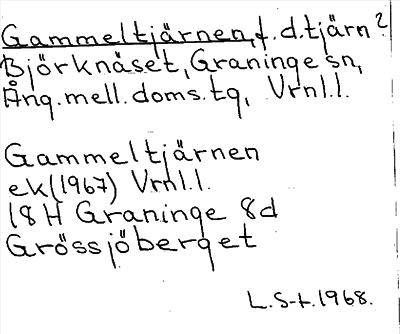 Gammeltjärnen, f.d. tjärn?
Björknäset, Graninge sn,
Ång. mell. doms. tg, Vrnl.l.
Gammeltjärnen
ek (1967) Vrnl.l.
18H Graninge 8d
Grössjöberget
L.S-t. 1968.